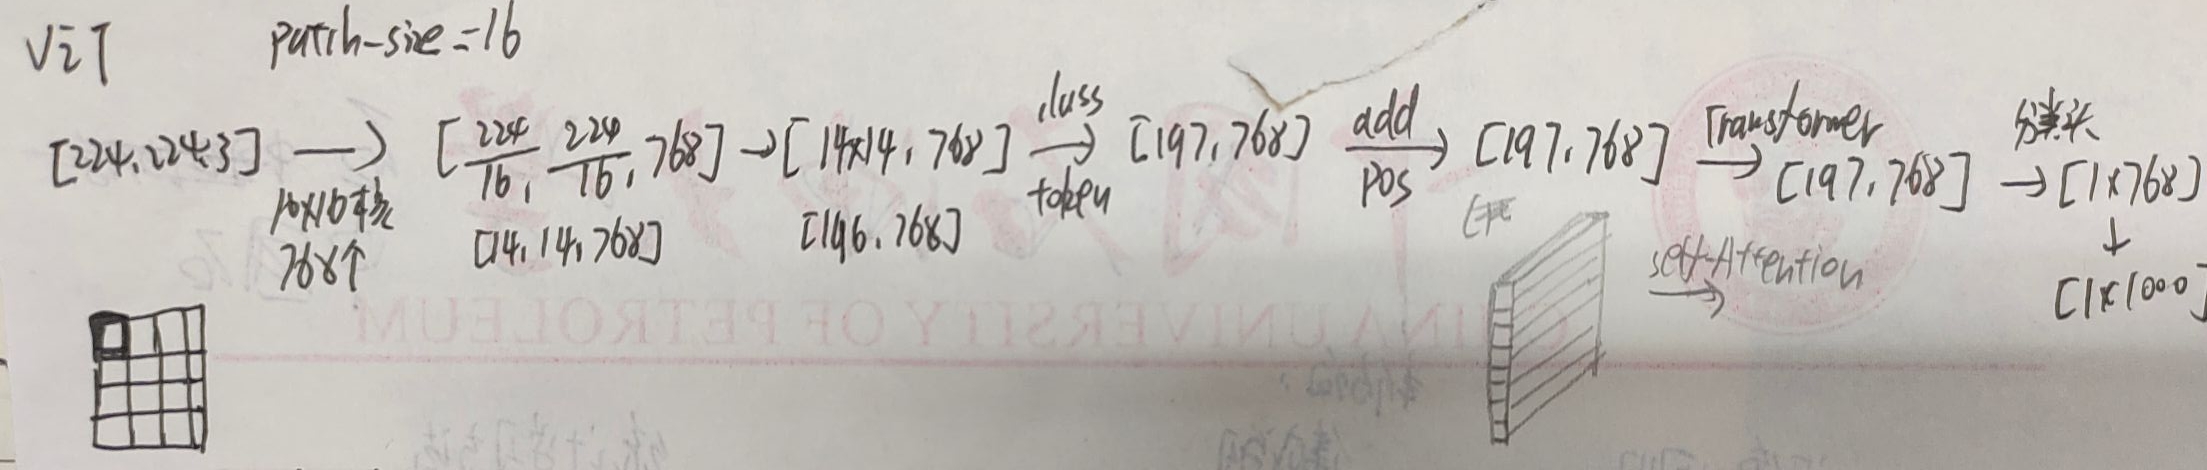 ViT patch-size=16
[224,224,3] → [224/16, 224/16, 768] → [14×14, 768] class token → [197,768] add pos → [197,768] Transformer → [197,768] 分类头 → [1×768]
16×16卷积核 768个
[14,14,768]
[196,768]
↓
[1×1000]
self-Attention →
CHINA UNIVERSITY OF PETROLEUM